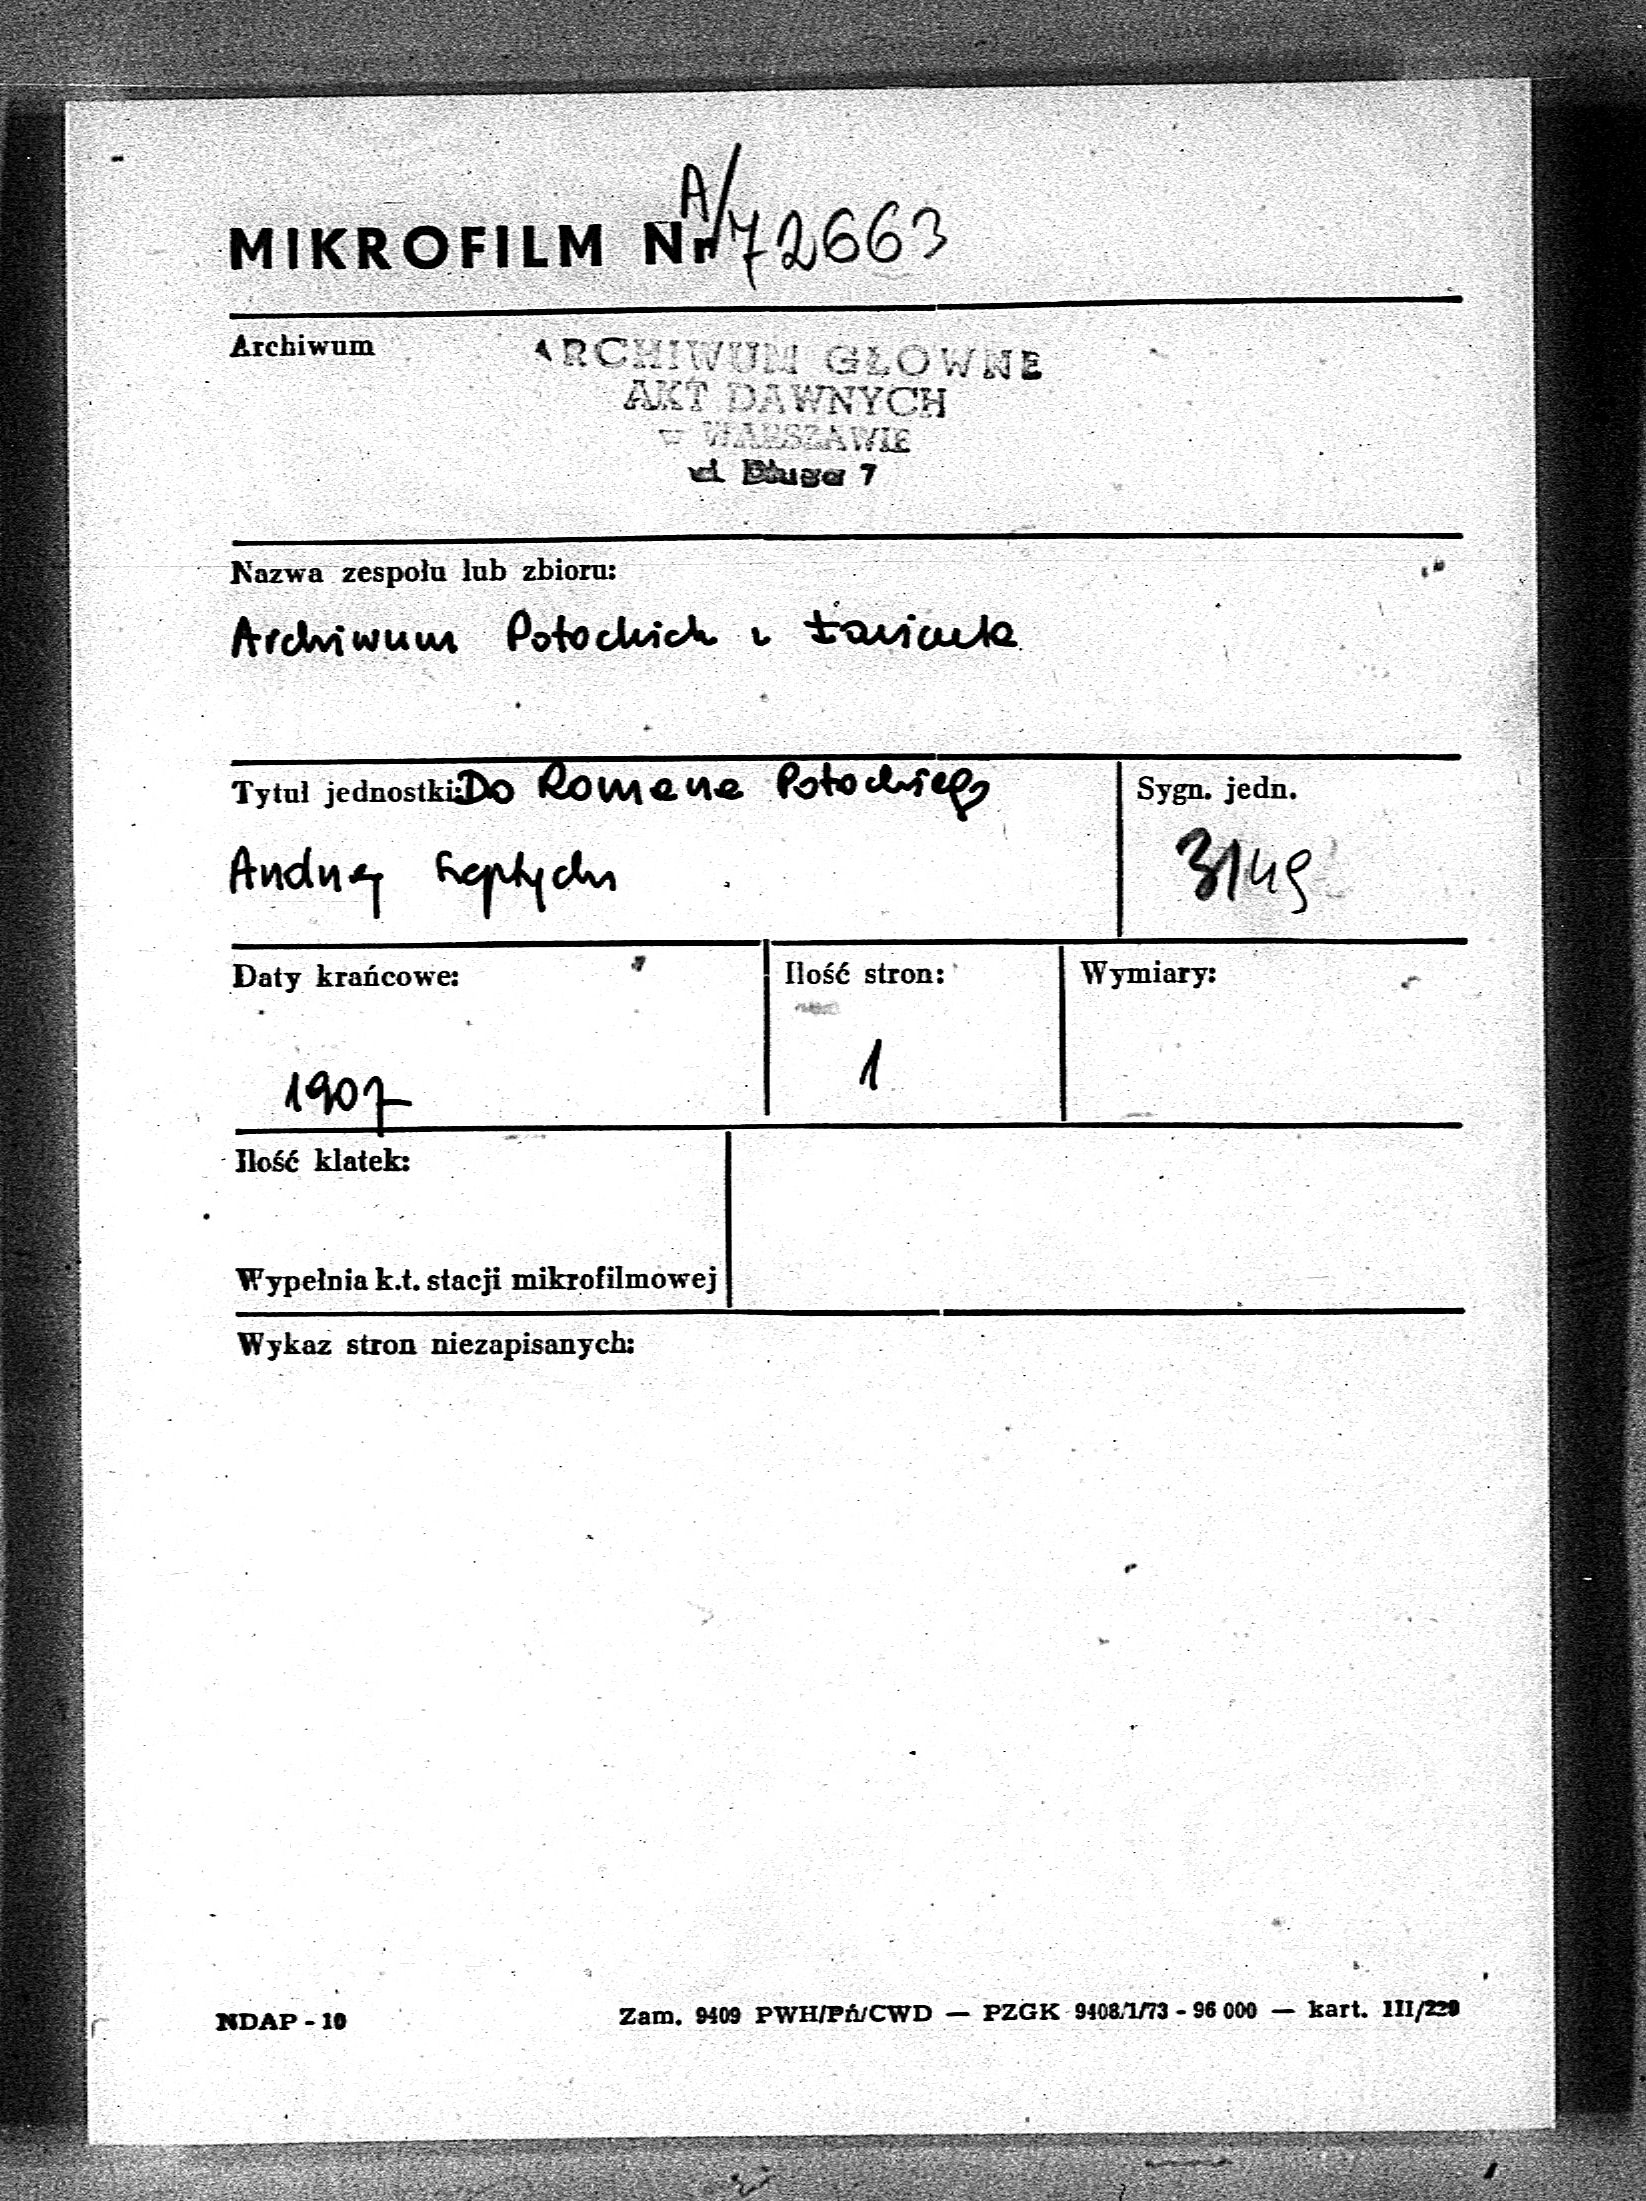 MIKROFILM Nr A/72663
Archiwum
ARCHIWUM GŁÓWNE
AKT DAWNYCH
w WARSZAWIE
ul. Długa 7
Nazwa zespołu lub zbioru:
Archiwum Potockich z Łańcuta
Tytuł jednostki: Do Romana Potockiego
Andrzej Szeptycki
Sygn. jedn.
3149
Daty krańcowe:
1907
Ilość stron:
1
Wymiary:
Ilość klatek:
Wypełnia k.t. stacji mikrofilmowej
Wykaz stron niezapisanych:
NDAP - 10
Zam. 9409 PWH/Pń/CWD — PZGK 9408/1/73 - 96 000 — kart. III/220